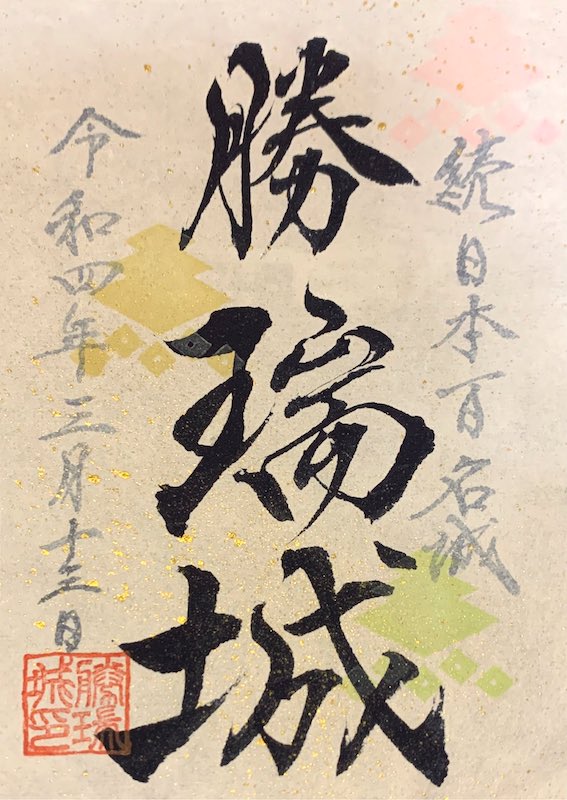 続日本百名城
勝瑞城
令和四年三月十三日
勝瑞
城印